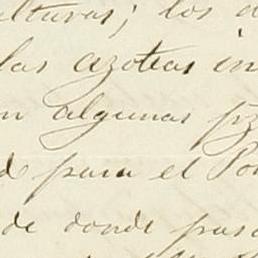 ulturas; los
las azoteas in
n algunas pz
d para el Po
de donde pasa